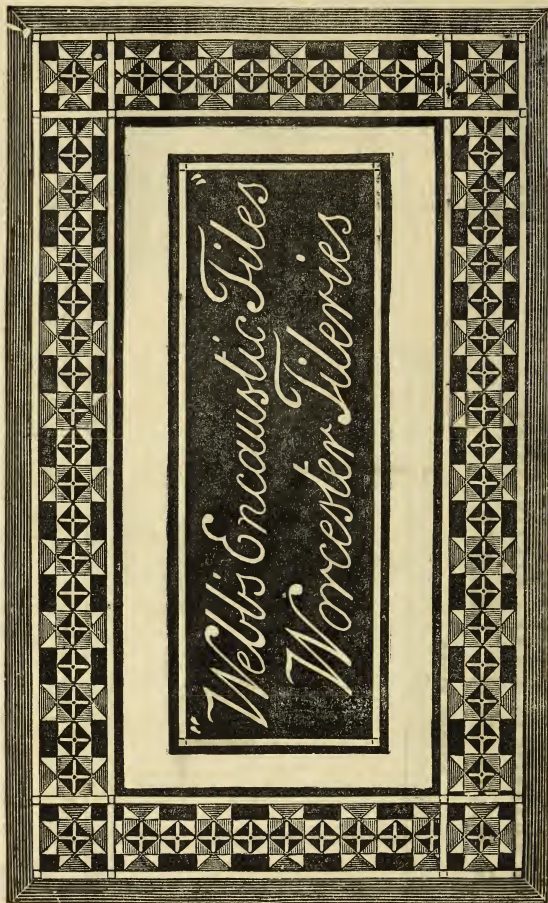 "Webb's Encaustic Tiles"
Worcester Tileries